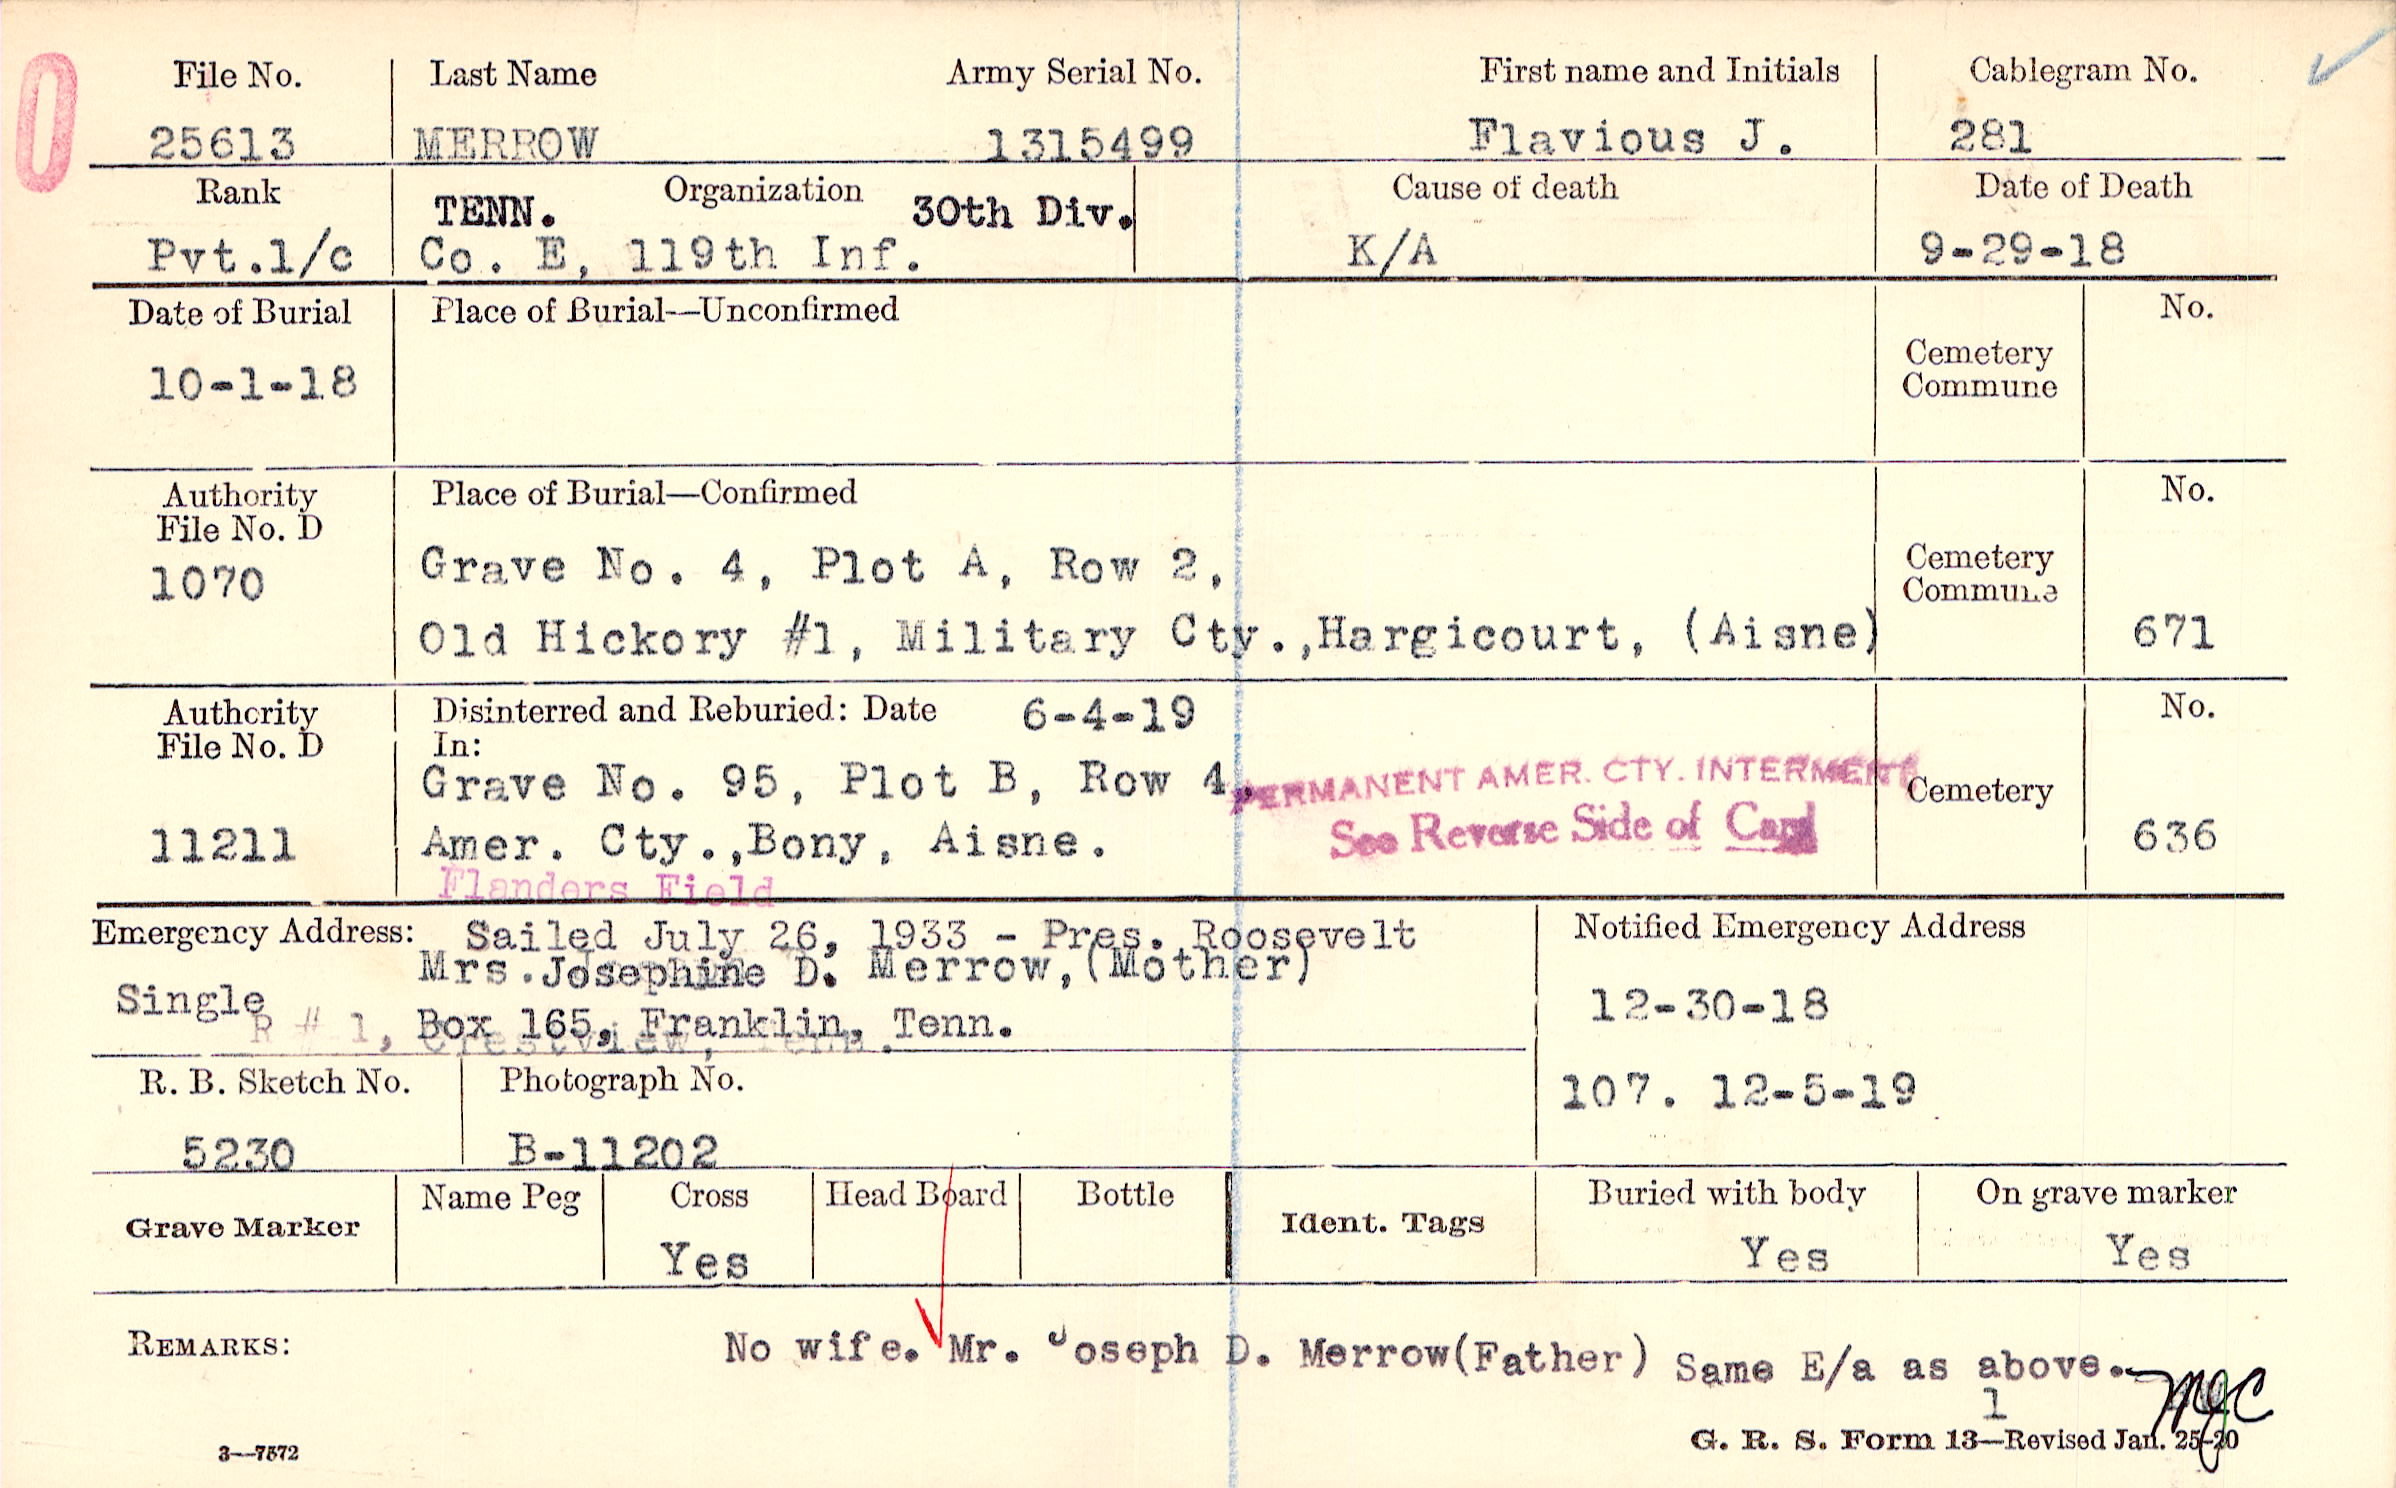 0
File No. Last Name Army Serial No. First name and Initials Cablegram No.
25613 MERROW 1315499 Flavious J. 281
Rank Organization Cause of death Date of Death
TENN. 30th Div.
Pvt.1/c Co. E, 119th Inf. K/A 9-29-18
Date of Burial Place of Burial—Unconfirmed No.
Cemetery
Commune
10-1-18
Authority Place of Burial—Confirmed No.
File No. D
1070 Grave No. 4, Plot A, Row 2, Cemetery
Commune
Old Hickory #1, Military Cty.,Hargicourt, (Aisne) 671
Authority Disinterred and Reburied: Date 6-4-19 No.
File No. D In:
Grave No. 95, Plot B, Row 4, PERMANENT AMER. CTY. INTERMENT Cemetery
See Reverse Side of Card
11211 Amer. Cty.,Bony, Aisne. 636
Flanders Field
Emergency Address: Sailed July 26, 1933 - Pres. Roosevelt Notified Emergency Address
Mrs.Josephine D. Merrow,(Mother)
Single 12-30-18
R # 1, Box 165, Franklin, Tenn.
Crestview, Tenn.
R. B. Sketch No. Photograph No. 107. 12-5-19
5230 B-11202
Grave Marker Name Peg Cross Head Board Bottle Ident. Tags Buried with body On grave marker
Yes Yes Yes
REMARKS: No wife. Mr. Joseph D. Merrow(Father) Same E/a as above.
MJC
1
3—7572 G. R. S. Form 13—Revised Jan. 25-20